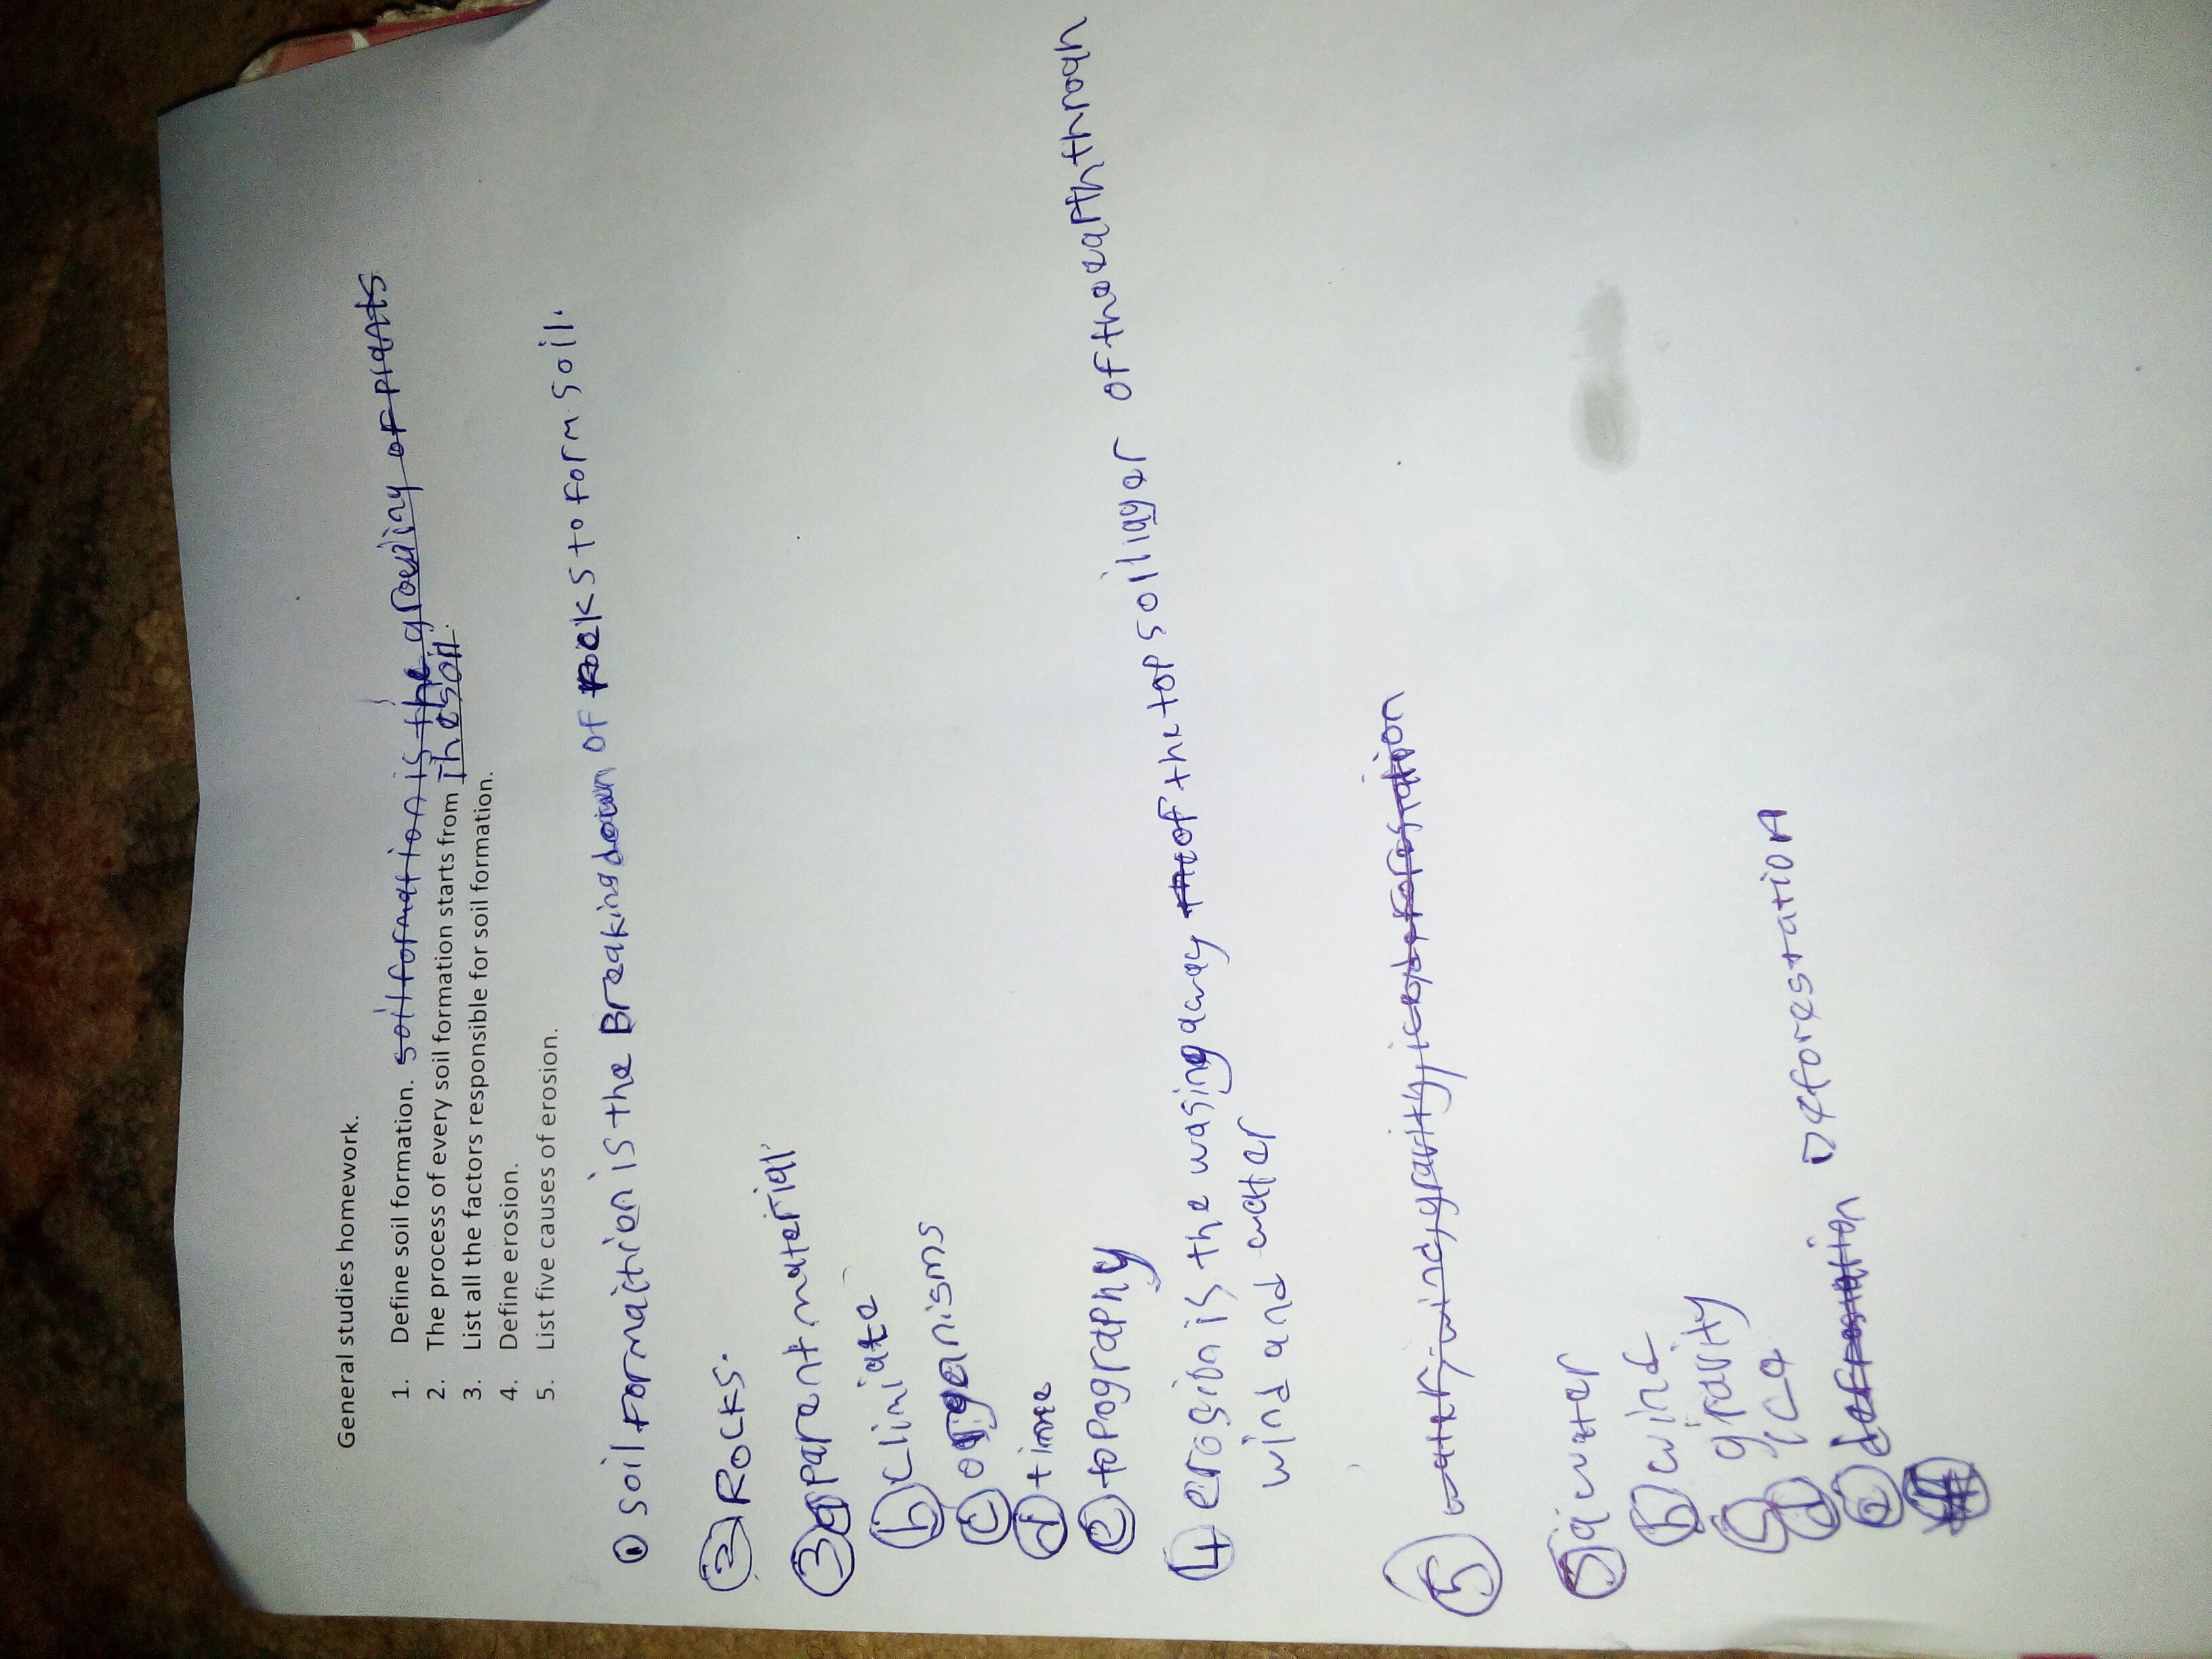 General studies homework.
1. Define soil formation. soil formation is the groeding of plats
2. The process of every soil formation starts from The soil.
3. List all the factors responsible for soil formation.
4. Define erosion.
5. List five causes of erosion.
① soil formaition is the Breaking down of rocks to form soil.
② Rocks.
③ a parent material
ⓑ climiate
ⓒ organisms
ⓓ time
ⓔ topography
④ erosion is the wasing away the of the top soil layer of the earth throah
wind and water
⑤ water, wind, gravity, ice, deforestation
⑤ a water
ⓑ wind
ⓒ gravity
ⓓ ice
ⓔ Deforestation